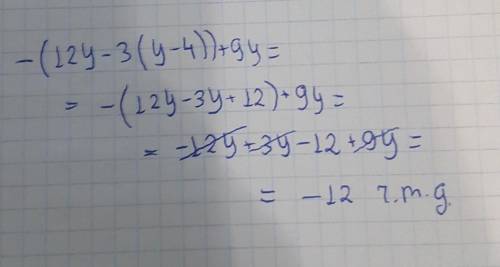 -(12y-3(y-4))+9y=
= -(12y-3y+12)+9y=
= -12y+3y-12+9y=
= -12 ч.т.д.